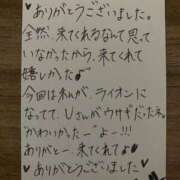 ありがとうございました。
全然、来てくれるなんて思って
いなかったから、来てくれて
嬉しかった♪
今回は私が、ライオンに
なってて、Uさんがウサギだったネ。
"かわいかったー"よー!!!
ありがとー、来てくれてよ♥
ありがとうございました